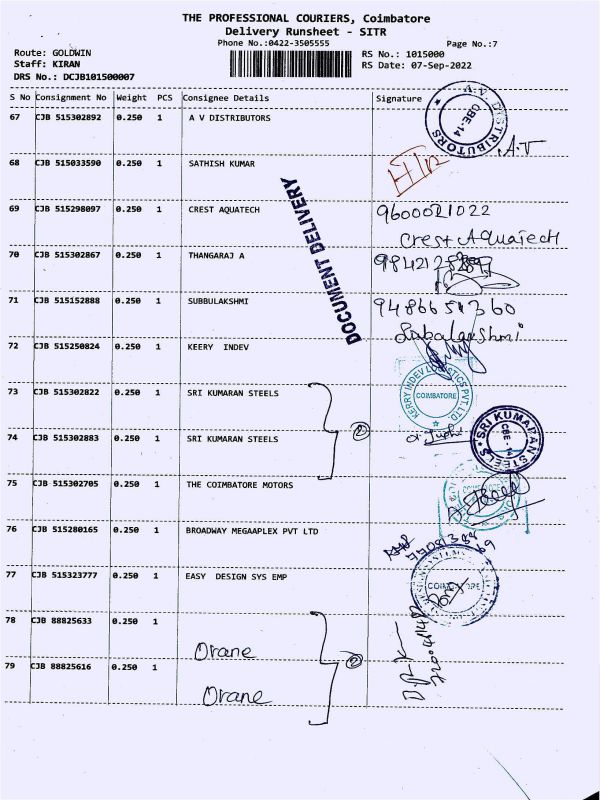 THE PROFESSIONAL COURIERS, Coimbatore
Delivery Runsheet - SITR
Phone No.:0422-3505555
Page No.:7
Route: GOLDWIN
RS No.: 1015000
Staff: KIRAN
RS Date: 07-Sep-2022
DRS No.: DCJB101500007
S No Consignment No Weight PCS Consignee Details Signature
67 CJB 515302892 0.250 1 A V DISTRIBUTORS
A.V DISTRIBUTORS
CBE-14
A.V
68 CJB 515033590 0.250 1 SATHISH KUMAR
DOCUMENT DELIVERY
69 CJB 515298097 0.250 1 CREST AQUATECH 9600021022
Crest AQuaTech
70 CJB 515302867 0.250 1 THANGARAJ A
71 CJB 515152888 0.250 1 SUBBULAKSHMI 9486651360
72 CJB 515250824 0.250 1 KEERY INDEV
KERRY INDEV LOGISTICS PVT. LTD.
COIMBATORE
73 CJB 515302822 0.250 1 SRI KUMARAN STEELS
2
74 CJB 515302883 0.250 1 SRI KUMARAN STEELS
SRI KUMARAN STEELS
CBE - 14
75 CJB 515302705 0.250 1 THE COIMBATORE MOTORS
76 CJB 515280165 0.250 1 BROADWAY MEGAAPLEX PVT LTD
77 CJB 515323777 0.250 1 EASY DESIGN SYS EMP
78 CJB 88825633 0.250 1
Orane
2
79 CJB 88825616 0.250 1
Orane